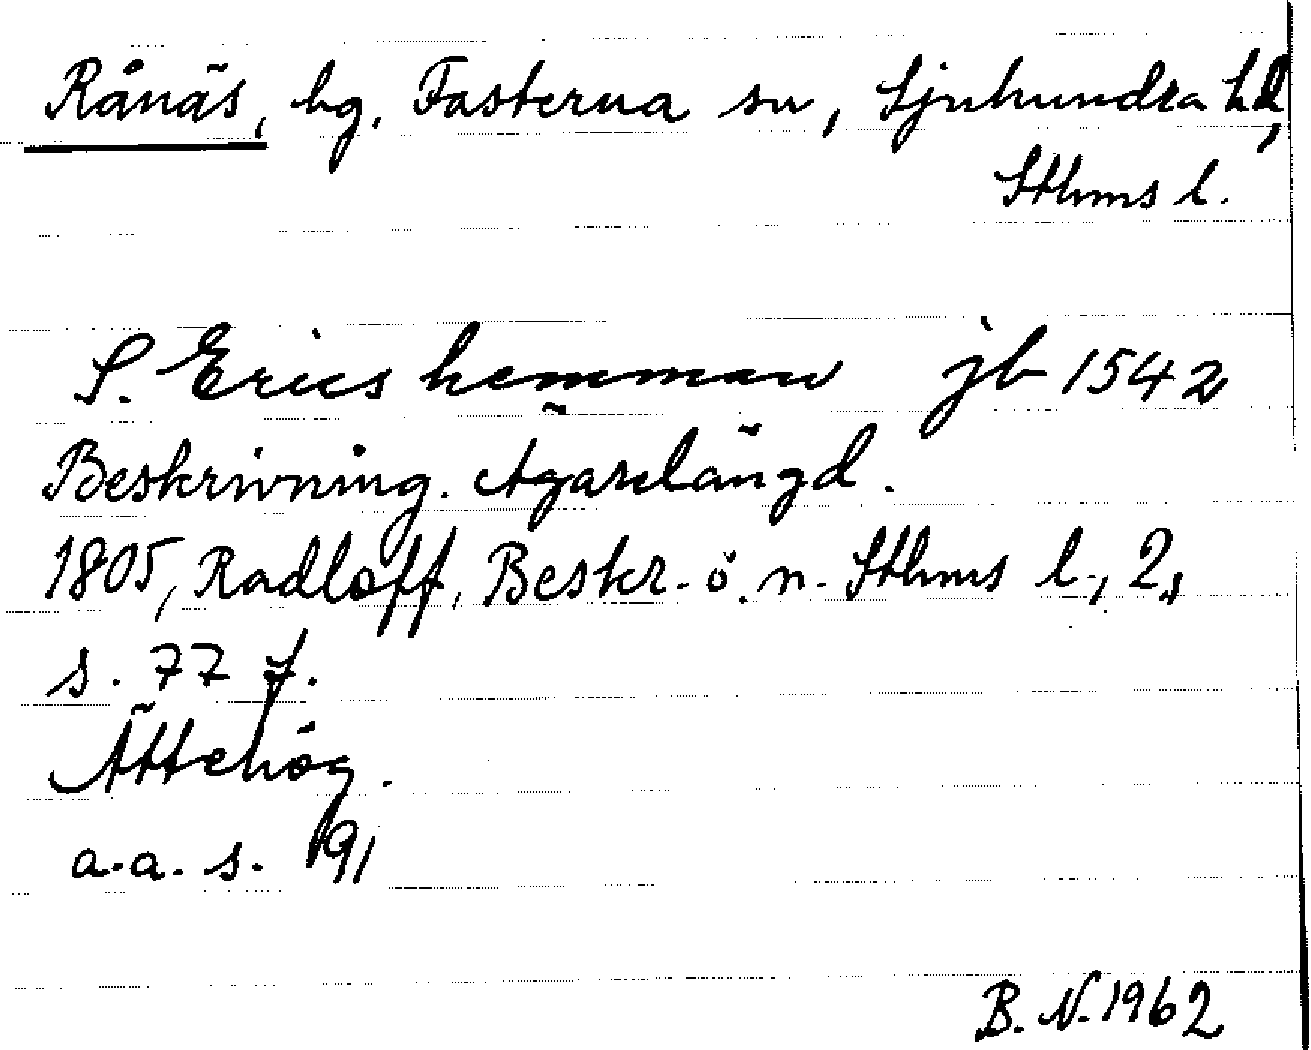 Rånäs, hg, Fasterna sn, Sjuhundra hd,
Sthms l.
S. Erics hemman jb 1542
Beskrivning. Ägarelängd.
1805, Radloff, Beskr. ö. n. Sthms l., 2,
s. 77 f.
Ättehög.
a.a. s. 191
B. N. 1962